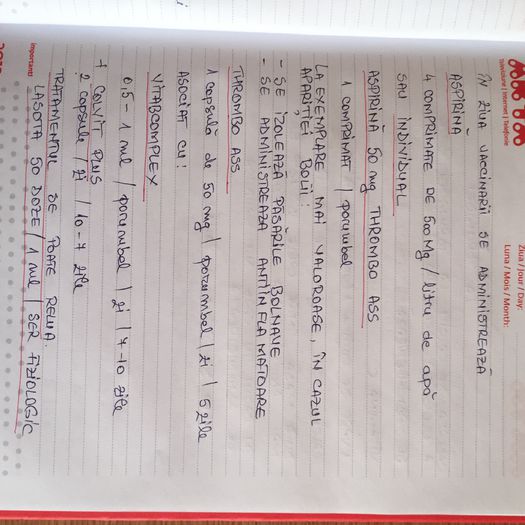 Ziua / Jour / Day:
Luna / Mois / Month:
Telefoane | Internet | Telefonie
ÎN ZIUA VACCINĂRII SE ADMINISTREAZĂ
ASPIRINĂ
4 COMPRIMATE DE 500 Mg / litru de apă
SAU INDIVIDUAL
ASPIRINĂ 50 mg THROMBO ASS
1 COMPRIMAT / porumbel
LA EXEMPLARE MAI VALOROASE, ÎN CAZUL
APARIȚIEI BOLII:
- SE IZOLEAZĂ PĂSĂRILE BOLNAVE
- SE ADMINISTREAZĂ ANTIINFLAMATOARE
THROMBO ASS
1 capsulă de 50 mg / porumbel / zi / 5 zile
ASOCIAT CU:
VITABCOMPLEX
0,5 - 1 ml / porumbel / zi / 7-10 zile
+ COLVIT PLUS
2 capsule / zi / 10-7 zile
TRATAMENTUL SE POATE RELUA.
LASOTA 50 DOZE / 1 ml / SER FIZIOLOGIC
Important!